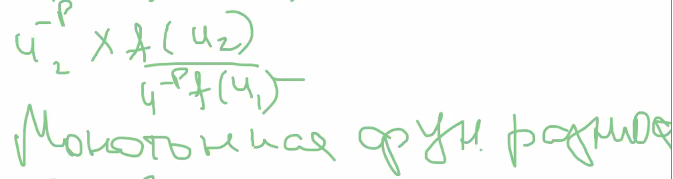 u₂⁻ᴾ × f(u₂)
u⁻ᴾ f(u₁)
Монотонная фун.